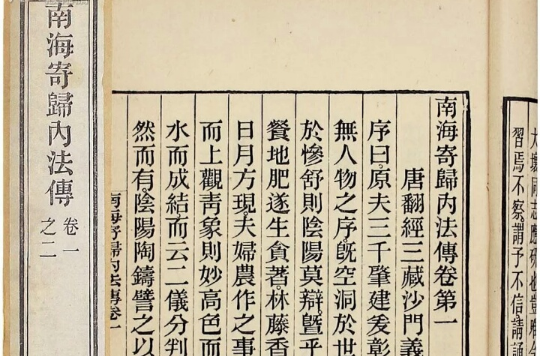 習焉不察謂予不信請誦
南海寄歸內法傳卷第一
唐翻經三藏沙門義
序曰原夫三千肇建爰彰
無人物之序旣空洞於世
於慘舒則陰陽莫辯暨乎
餐地肥遂生貪著林藤香
日月方現夫婦農作之事
而上觀靑象則妙高色而
水而成結而云二儀分判
然而有陰陽陶鑄譬之以
南海寄歸內法傳卷一
南海寄歸內法傳
卷一
之二